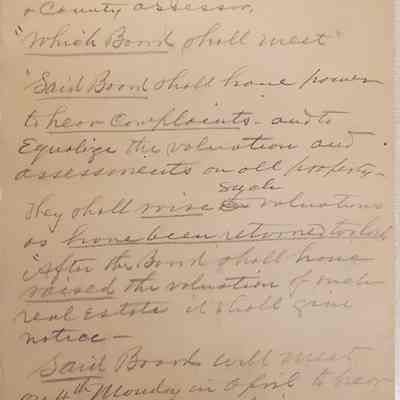 & County assessor,
"Which Board shall meet"
"Said Board shall have power
to hear Complaints - and to
Equalize the valuation and
assessments on all property -
Such
They shall raise valuations
as have been returned too low
"After the Board shall have
raised the valuation of such
real Estate it shall give
notice -
Said Board will meet
on 4th Monday in April to hear